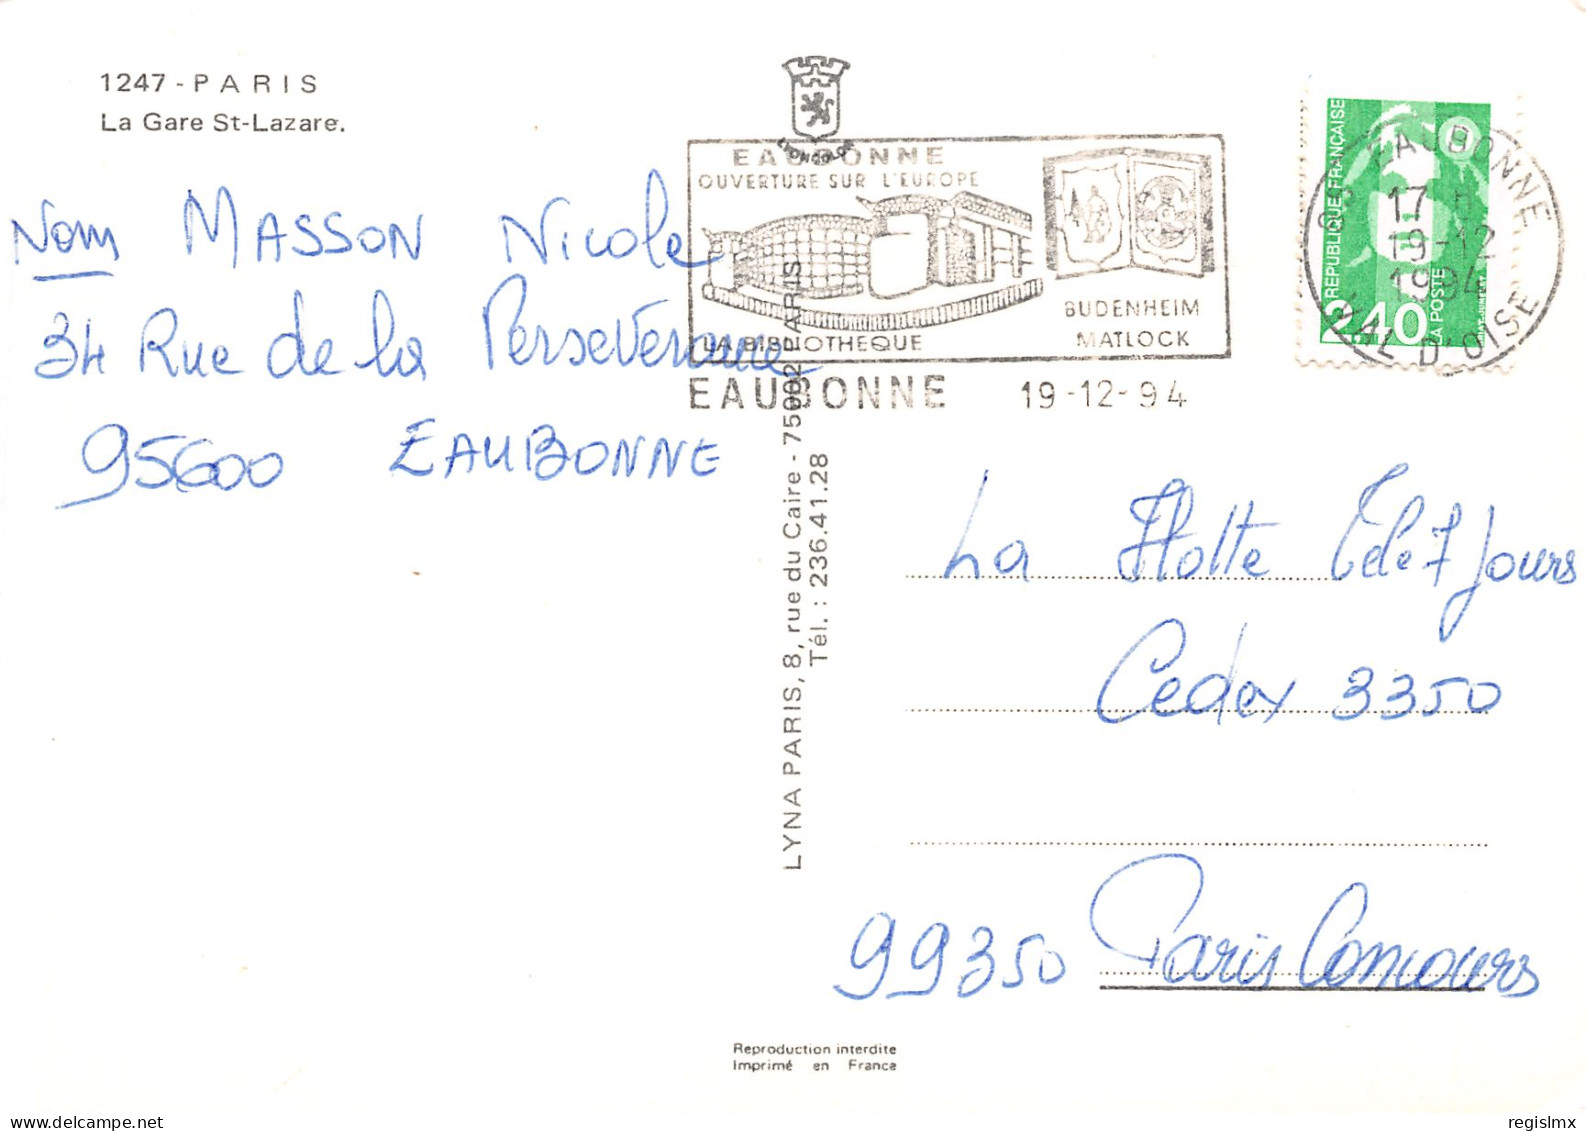 1247 - PARIS
La Gare St-Lazare.
Nom MASSON Nicole
34 Rue de la Perseverance
95600 EAUBONNE
LYONCOLOR
EAUBONNE
OUVERTURE SUR L'EUROPE
LA BIBLIOTHEQUE
BUDENHEIM
MATLOCK
EAUBONNE 19-12-94
REPUBLIQUE FRANÇAISE
2,40
LA POSTE
95 EAUBONNE
17 H
19-12
1994
VAL D'OISE
LYNA PARIS, 8, rue du Caire - 75002 PARIS
Tél. : 236.41.28
La Hotte Télé 7 Jours
Cedex 3350
99350 Paris Concours
Reproduction interdite
Imprimé en France
regislmx